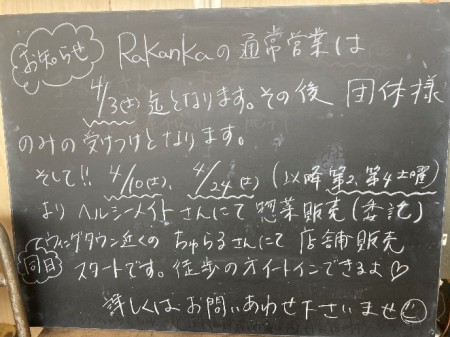 お知らせ
Rakankaの通常営業は
4/3(土)迄となります。その後 団体様
のみの受けつけとなります。
そして!! 4/10(土)、4/24(土)(以降第2、第4土曜)
より ヘルシーメイトさんにて惣菜販売(委託)
同日
ウィングタウン近くの ちゅらるさんにて店舗販売
スタートです。徒歩の方イートインできるよ♡
詳しくはお問いあわせ下さいませ☺